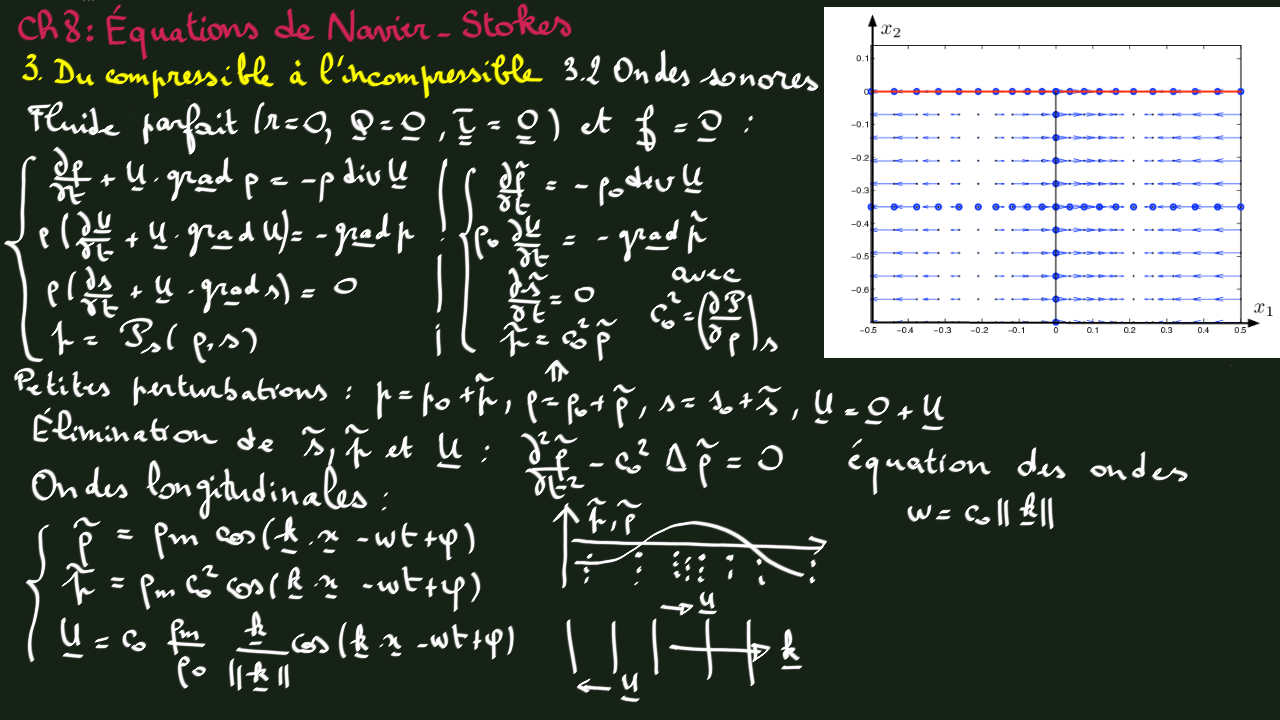 Ch 8 : Équations de Navier - Stokes
3. Du compressible à l'incompressible 3.2 Ondes sonores
Fluide parfait (r=0, Q=0, τ=0) et f=0 :
∂ρ/∂t + U · grad ρ = -ρ div U
ρ(∂U/∂t + U · grad U) = - grad p
ρ(∂s/∂t + U · grad s) = 0
p = 𝒫s(ρ, s)
∂ρ̃/∂t = -ρ₀ div U
ρ₀ ∂U/∂t = - grad p̃
∂s̃/∂t = 0
p̃ = c₀² ρ̃
avec
c₀² = (∂𝒫/∂ρ)s
⇑
Petites perturbations : p = p₀ + p̃, ρ = ρ₀ + ρ̃, s = s₀ + s̃, U = 0 + U
Élimination de s̃, p̃ et U : ∂²ρ̃/∂t² - c₀² Δ ρ̃ = 0 équation des ondes
ω = c₀ ||k||
Ondes longitudinales :
ρ̃ = ρm cos(k · x - ωt + φ)
p̃ = ρm c₀² cos(k · x - ωt + φ)
U = c₀ ρm/ρ₀ k/||k|| cos(k · x - ωt + φ)
p̃, ρ̃
→ U
k
← U
x₂
0.1
0
−0.1
−0.2
−0.3
−0.4
−0.5
−0.6
−0.5 −0.4 −0.3 −0.2 −0.1 0 0.1 0.2 0.3 0.4 0.5
x₁